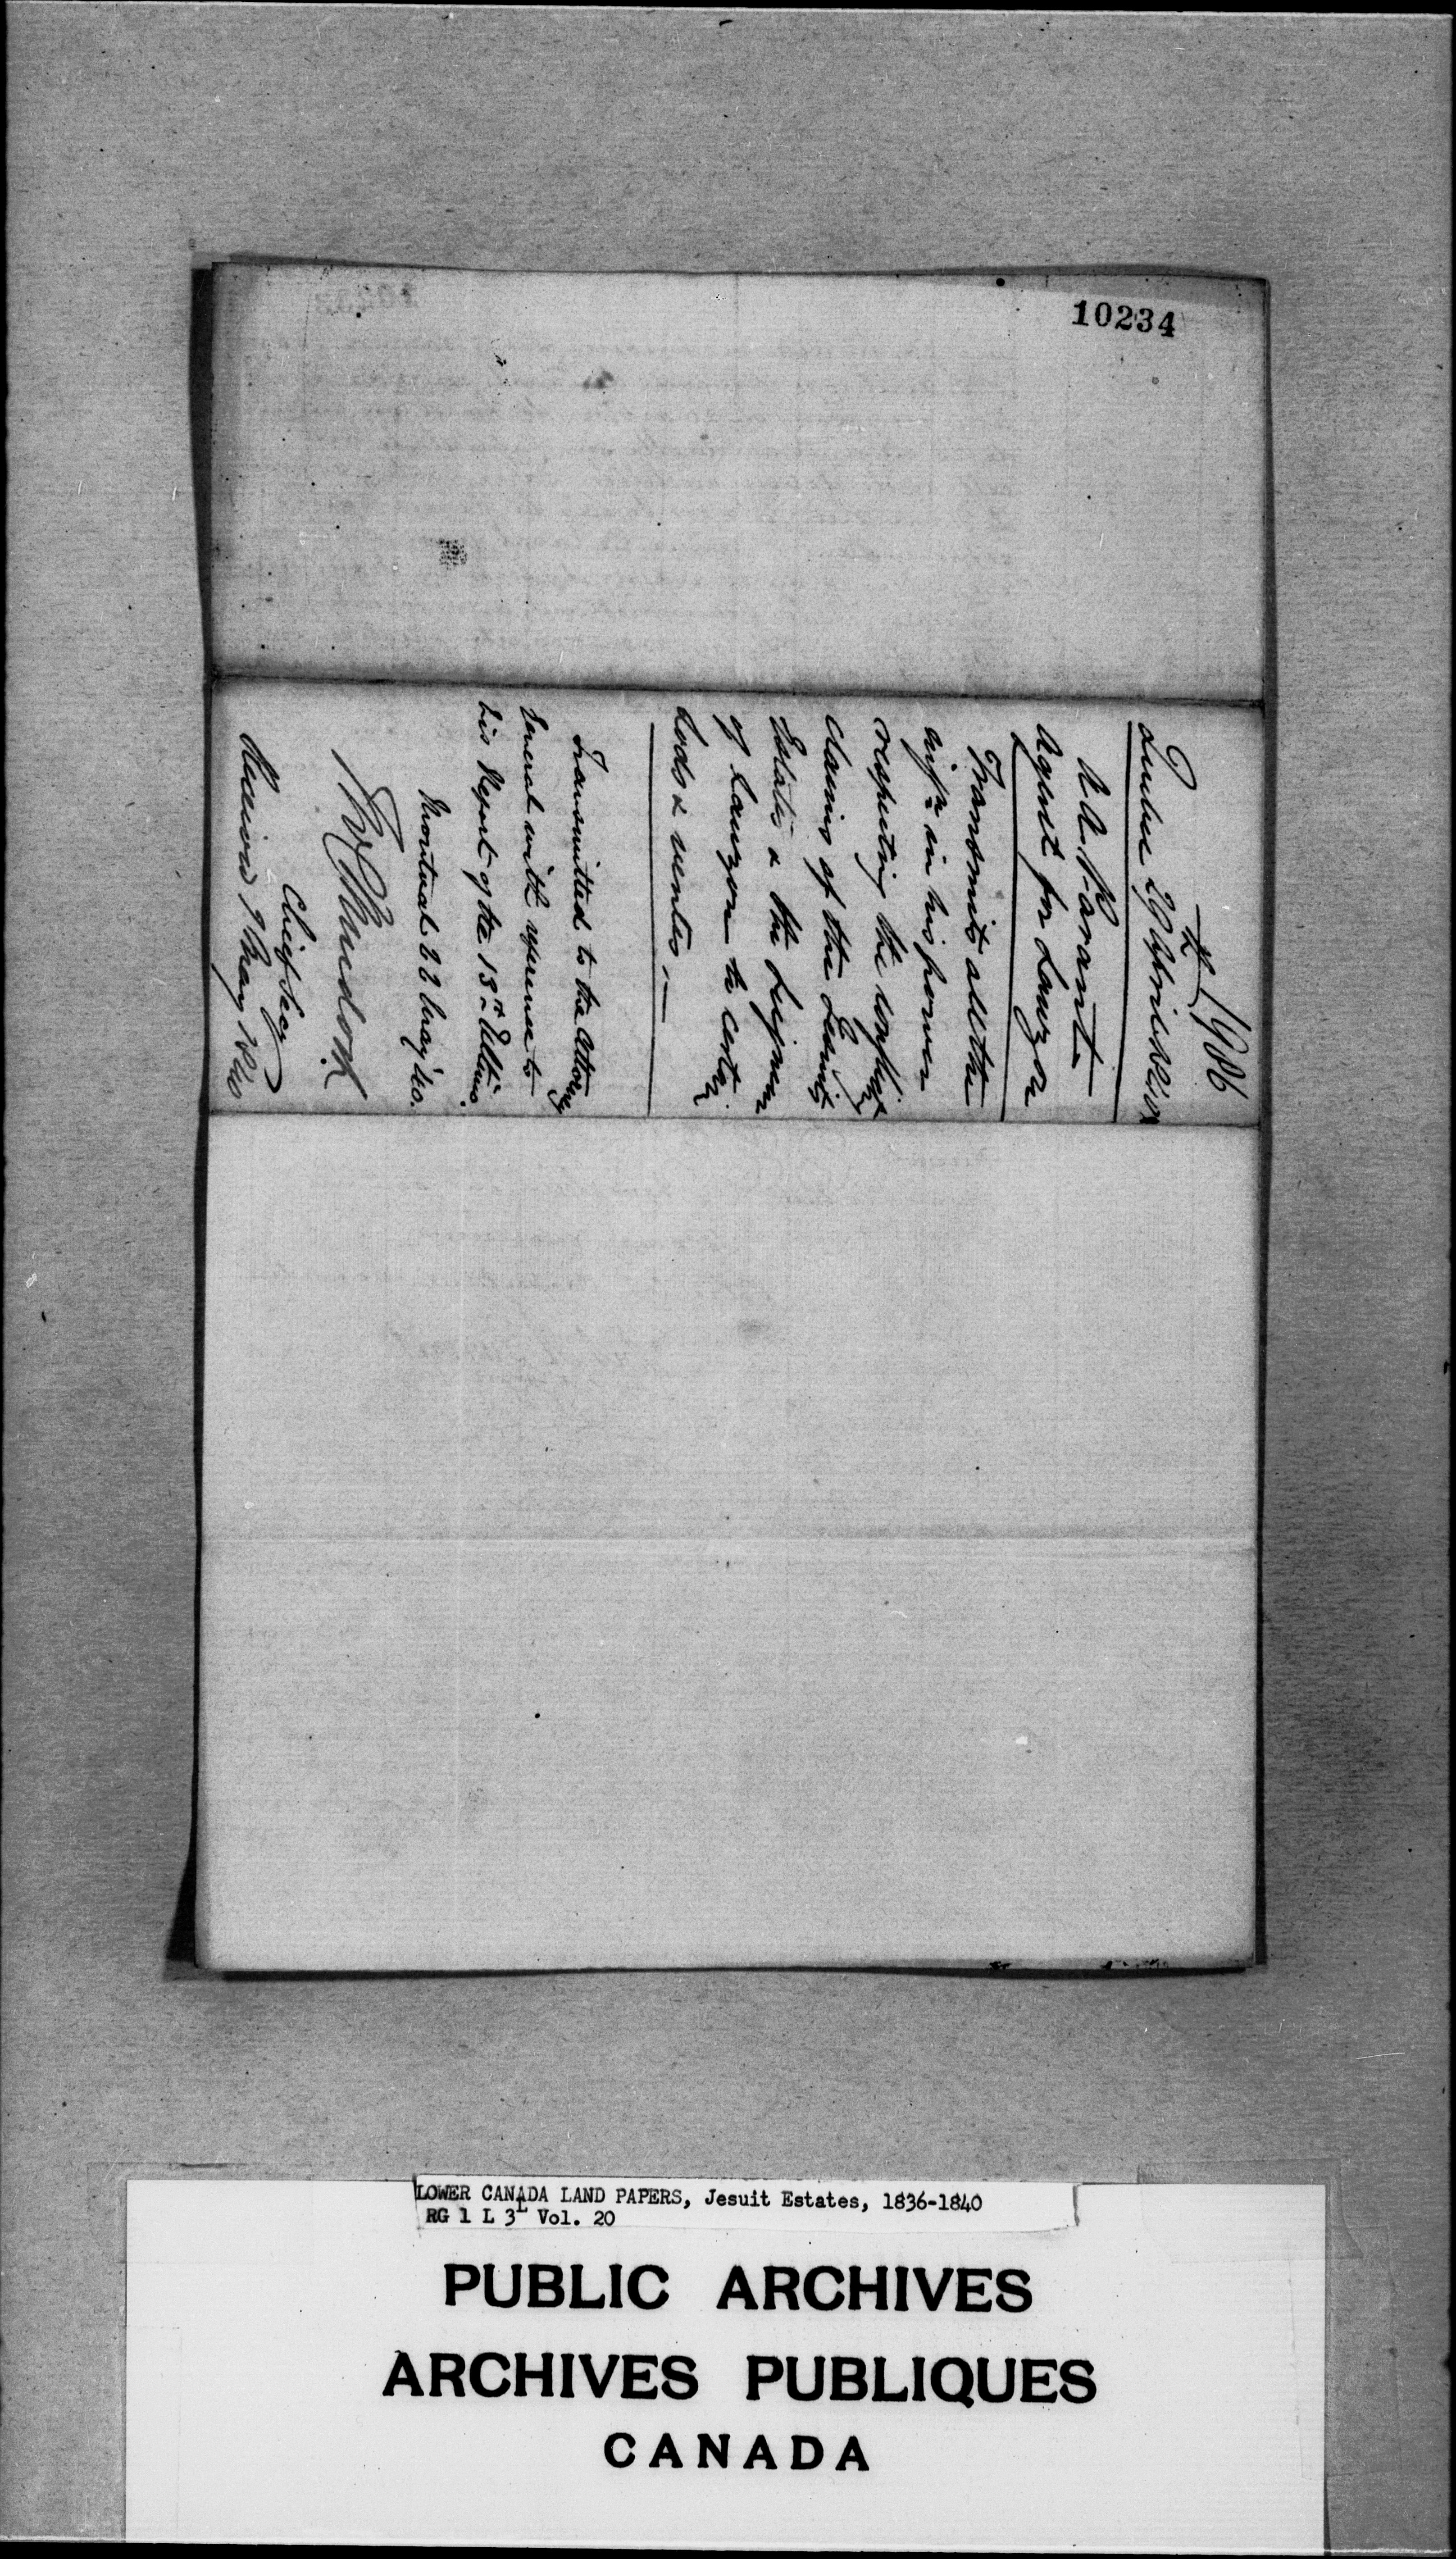 10234
1986
Quebec 29 April 1840
A. A. Parant
Agent for Lauzon
Transmits all the
in his power
respecting the conflict
claims of the Jesuits
Estates & the Seignior
of Lauzon to certain
Lods & ventes.—
Transmitted to the Attorney
General with reference to
his Report of the 13th Ultimo.
Montreal 22 May '40.
T W C Murdoch
Chief Secy
Received 9 May 1840
LOWER CANADA LAND PAPERS, Jesuit Estates, 1836-1840
RG 1 L 3L Vol. 20
PUBLIC ARCHIVES
ARCHIVES PUBLIQUES
CANADA